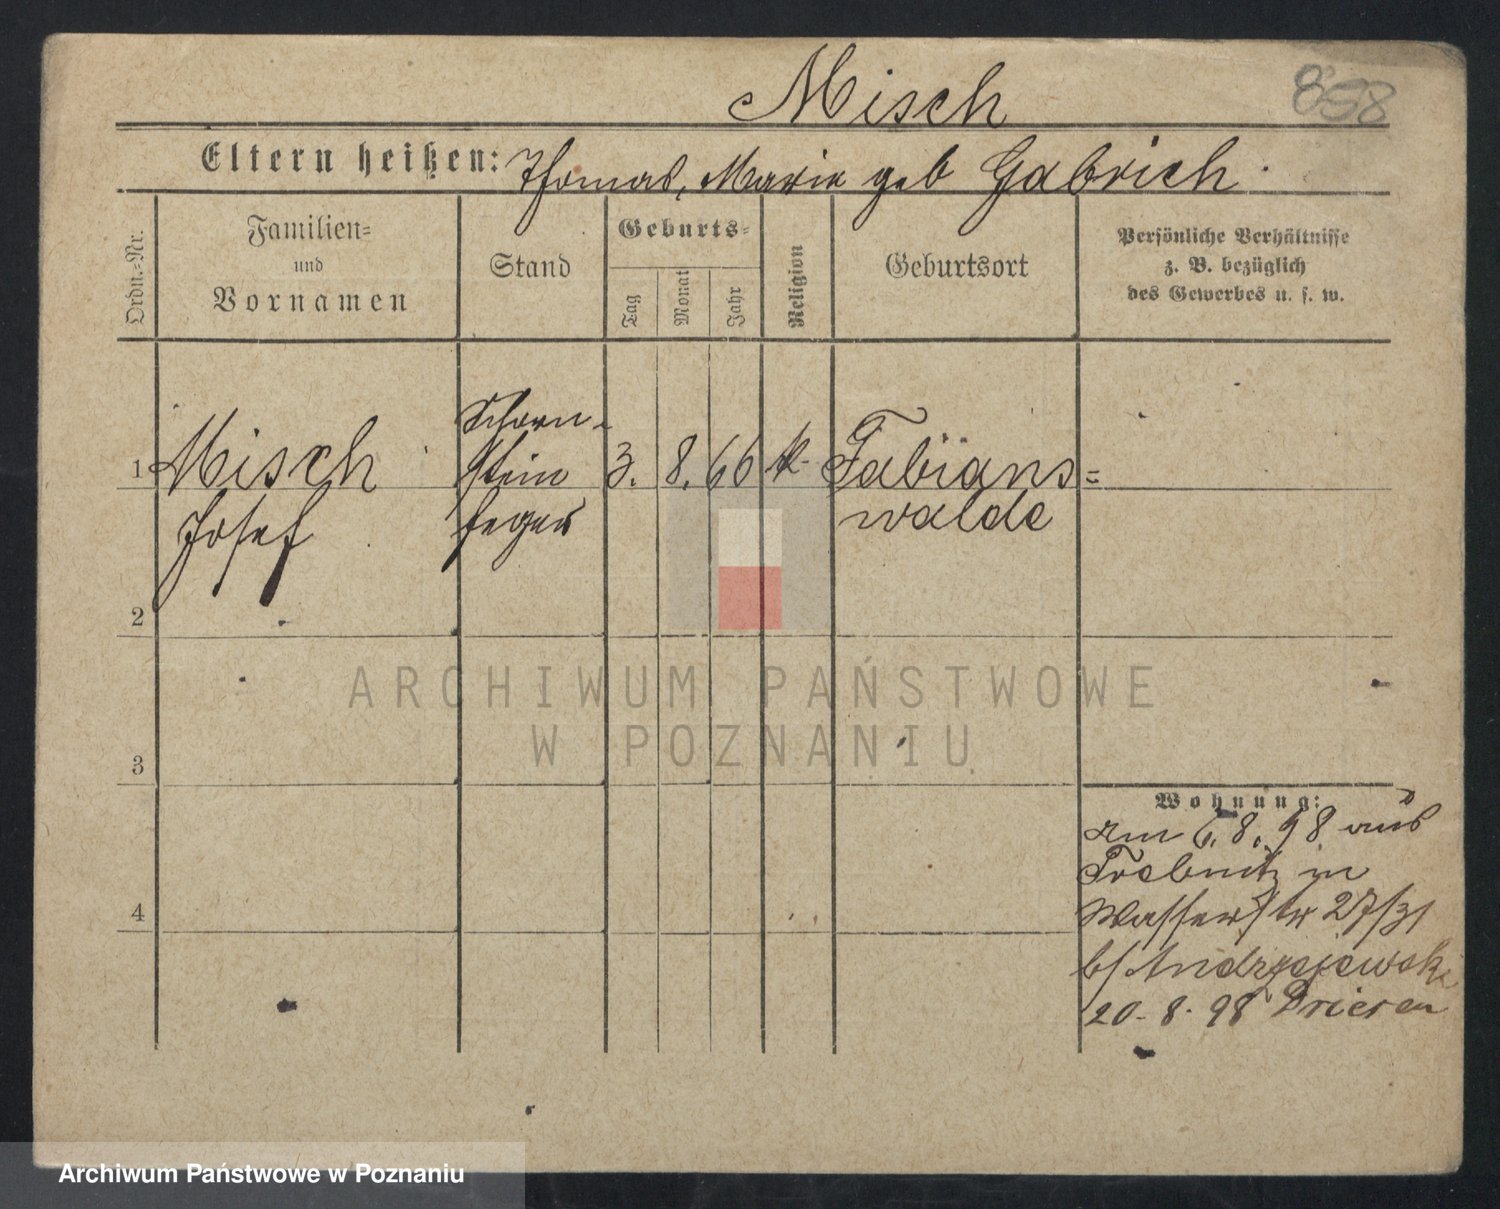 Misch
858
Eltern heißen: Thomas, Marie geb Gabrich.
Ordn.-Nr.
Familien-
und
Vornamen
Stand
Geburts-
Tag
Monat
Jahr
Religion
Geburtsort
Persönliche Verhältnisse
z. B. bezüglich
des Gewerbes u. s. w.
1 Misch
Josef
Schorn-
stein
feger
3. 8. 66 k.
Fabians=
walde
2
3
4
ARCHIWUM PAŃSTWOWE
W POZNANIU
Wohnung:
am 6. 8. 98 aus
Trebnitz in
Wasserstr 27/31
b/ Andrzejewski
20. 8. 98 Driesen
Archiwum Państwowe w Poznaniu